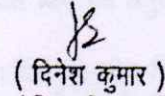 ( दिनेश कुमार )